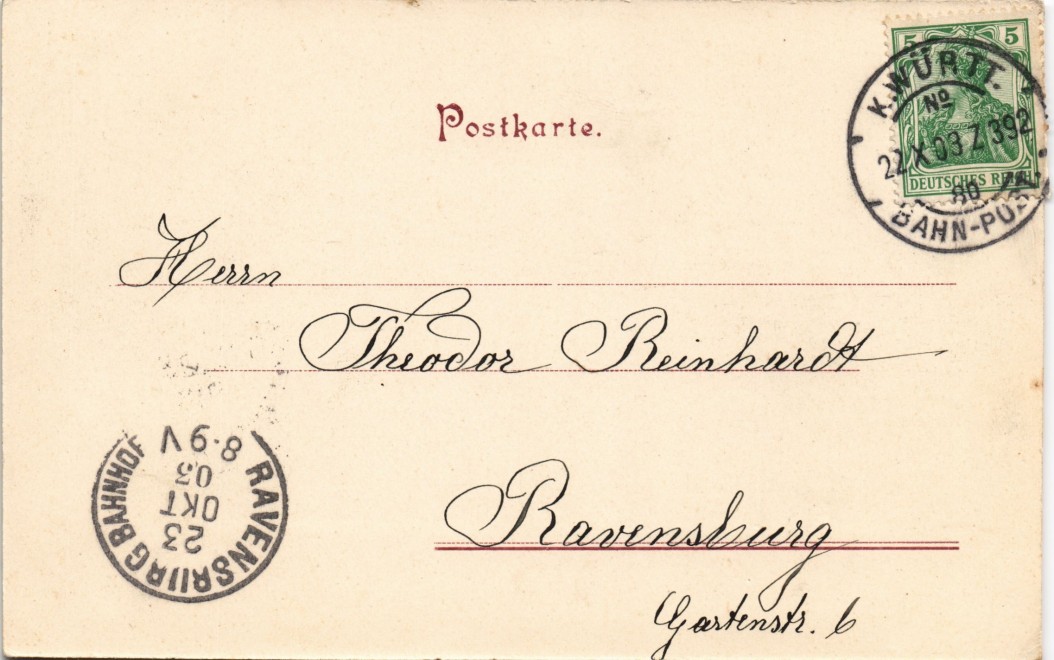 5 5
DEUTSCHES REICH
K. WÜRTT.
No
22 X 03 Z 392
80
BAHN-POST
Postkarte.
Herrn
Theodor Reinhardt
Ravensburg
Gartenstr. 6
RAVENSBURG BAHNHOF
23
OKT
03
8-9V